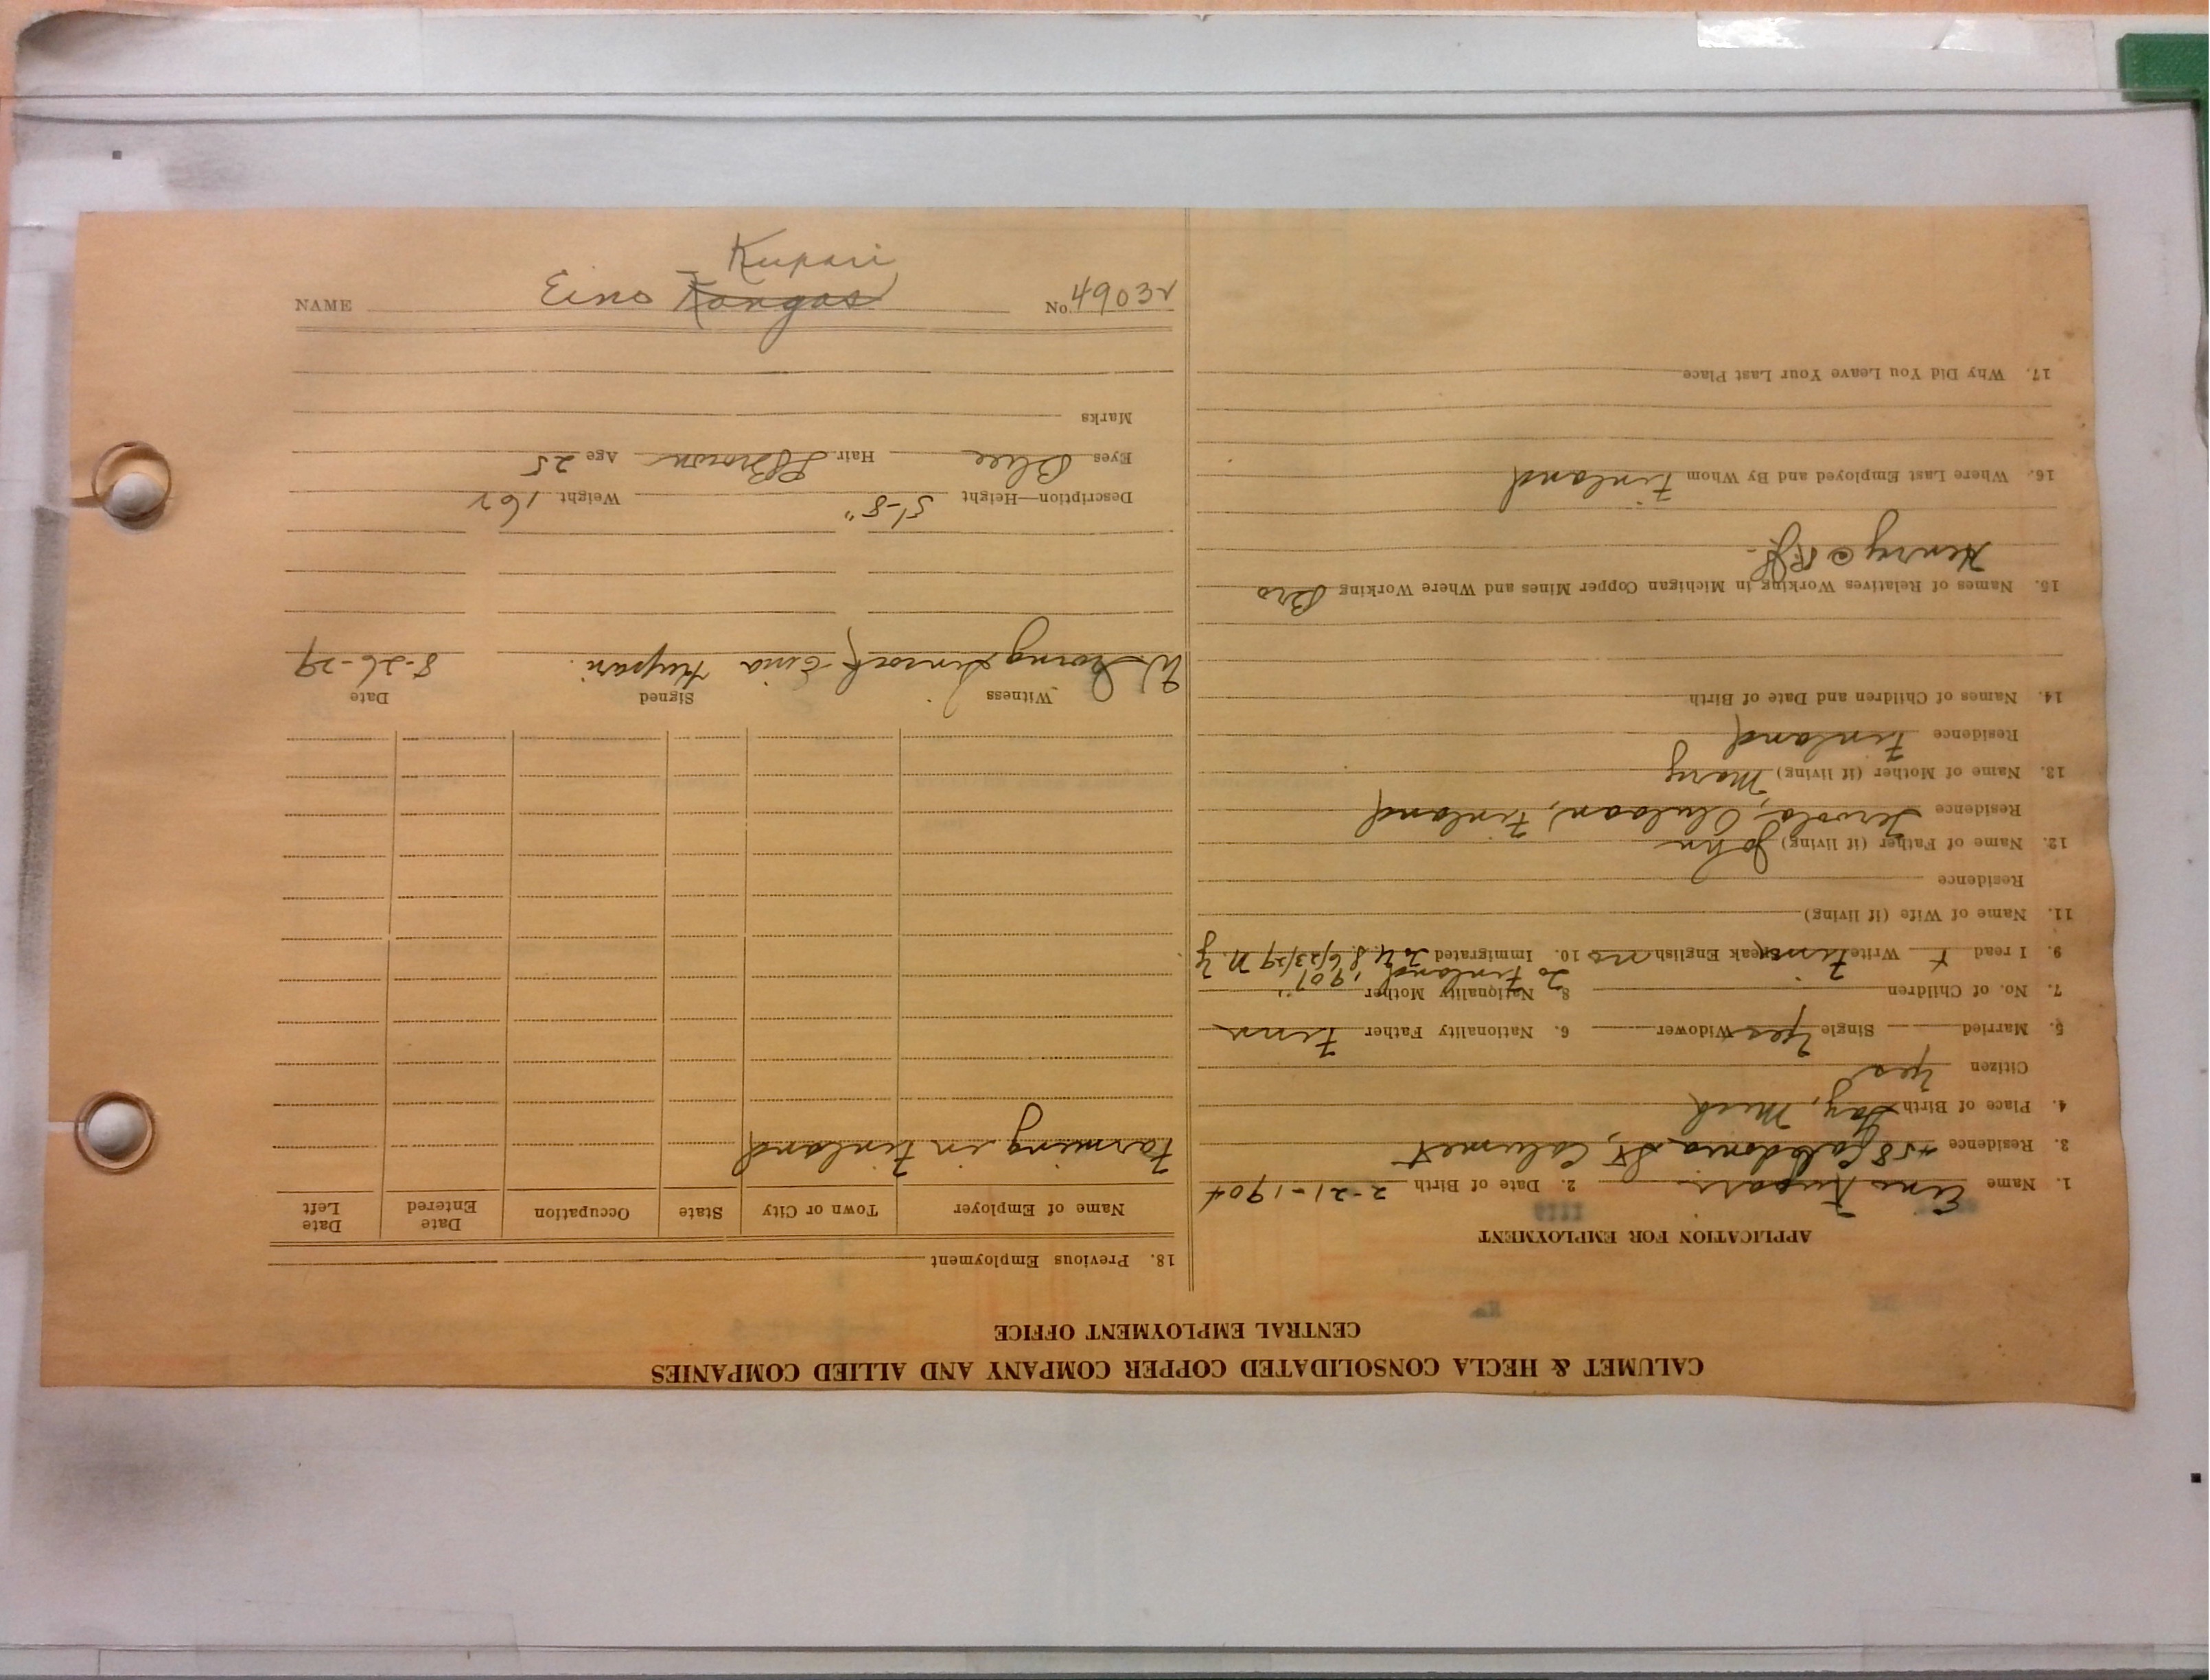 CALUMET & HECLA CONSOLIDATED COPPER COMPANY AND ALLIED COMPANIES
CENTRAL EMPLOYMENT OFFICE
APPLICATION FOR EMPLOYMENT
1. Name Eino Kupari 2. Date of Birth 2-21-1904
3. Residence 458 Caledonia St, Calumet
4. Place of Birth Mich
Citizen Yes
5. Married Single Yes Widower 6. Nationality Father Finn
7. No. of Children 8. Nationality Mother "
To Finland, 1907
9. I read Write Finn Speak English no 10. Immigrated To U.S. 6/23/29 N.Y
11. Name of Wife (if living)
Residence
12. Name of Father (if living) John
Residence Tervola, Oulaan, Finland
13. Name of Mother (if living) Mary
Residence Finland
14. Names of Children and Date of Birth
15. Names of Relatives Working in Michigan Copper Mines and Where Working Bro
Henry @
16. Where Last Employed and By Whom Finland
17. Why Did You Leave Your Last Place
18. Previous Employment
Name of Employer Town or City State Occupation Date Entered Date Left
Farming in Finland
Witness Signed Date
Eino Kupari 8-26-29
Description—Height 5'-8" Weight 162
Eyes Blue Hair Brown Age 25
Marks
Kupari
NAME Eino Kangas No. 49032